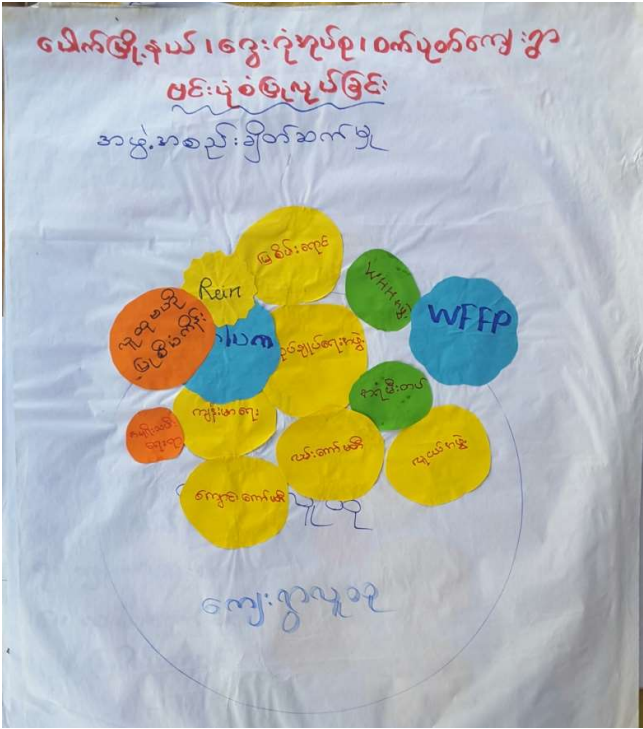 ပေါက်မြို့နယ်၊ ဂွေးကုံအုပ်စု၊ ဝက်ပုတ်ကျေးရွာ
ဗင်းပုံစံပြုလုပ်ခြင်း
အဖွဲ့အစည်းချိတ်ဆက်မှု
မြစိမ်းရောင်
Rein
WHH အဖွဲ့
WFFP
အုပ်ချုပ်ရေးအဖွဲ့
အရံမီးသတ်
ကျန်းမာရေး
လမ်းကော်မတီ
လူငယ်အဖွဲ့
ကျောင်းကော်မတီ
ကျေးရွာလူထု